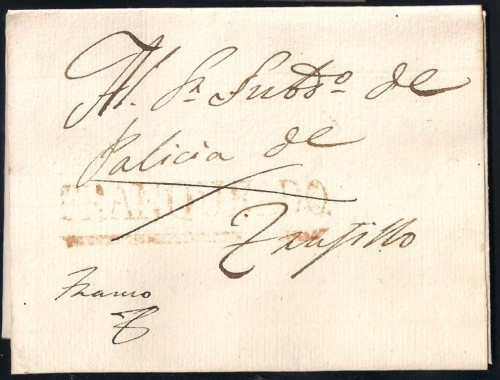 Al Sr. Subdo. de
Policia de
Trujillo
Franco